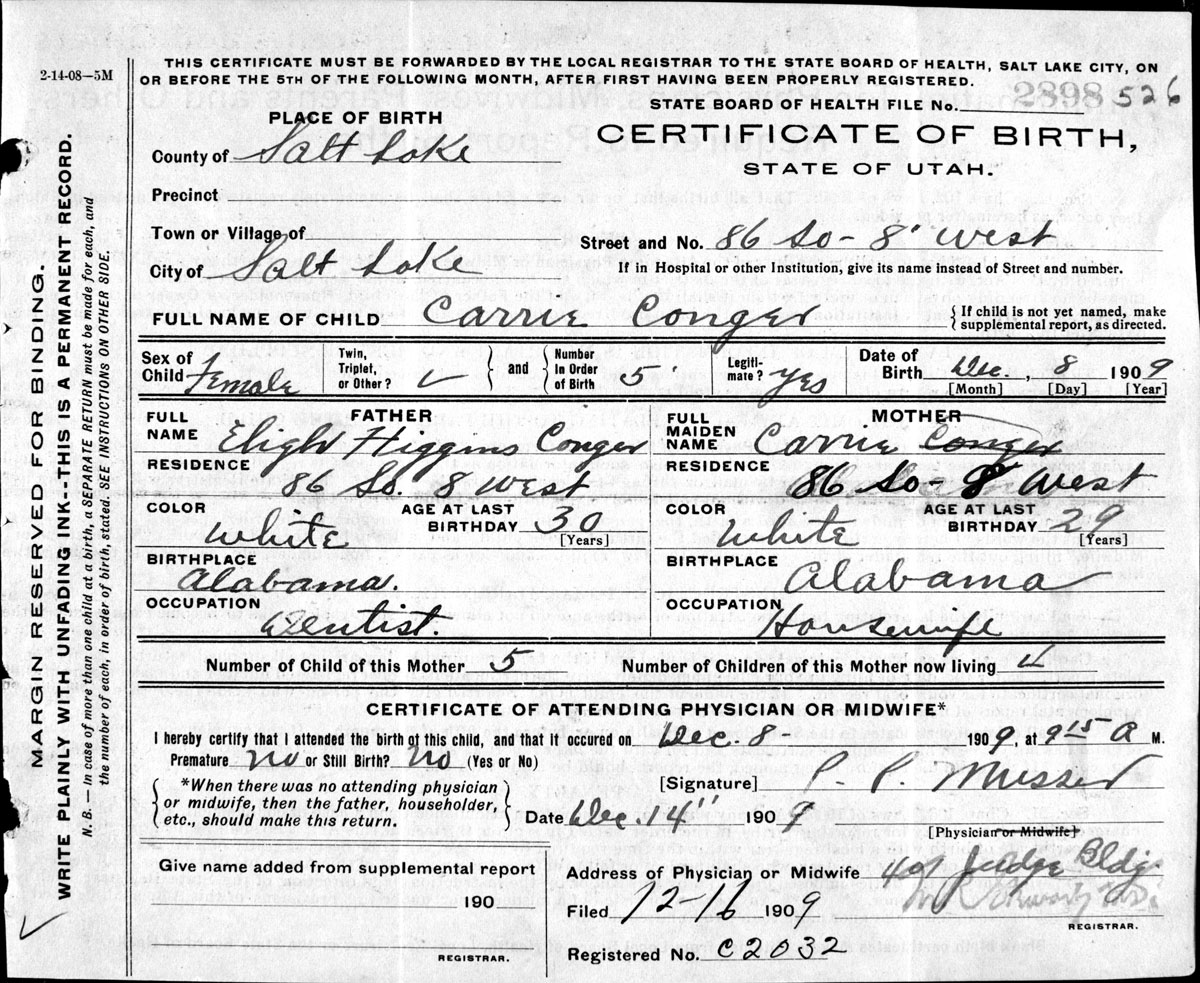 2-14-08—5M
THIS CERTIFICATE MUST BE FORWARDED BY THE LOCAL REGISTRAR TO THE STATE BOARD OF HEALTH, SALT LAKE CITY, ON
OR BEFORE THE 5TH OF THE FOLLOWING MONTH, AFTER FIRST HAVING BEEN PROPERLY REGISTERED.
STATE BOARD OF HEALTH FILE No. 2898 526
PLACE OF BIRTH
CERTIFICATE OF BIRTH,
STATE OF UTAH.
County of Salt Lake
Precinct
Town or Village of
Street and No. 86 So - 8' West
City of Salt Lake
If in Hospital or other Institution, give its name instead of Street and number.
FULL NAME OF CHILD Carrie Conger
{If child is not yet named, make
supplemental report, as directed.
Sex of Child Female
Twin, Triplet, or Other? ✓ } and { Number in Order of Birth 5
Legitimate? Yes
Date of Birth Dec., 8 1909
[Month] [Day] [Year]
FATHER
FULL NAME Higgins Conger
RESIDENCE 86 So. 8 West
COLOR White
AGE AT LAST BIRTHDAY 30 [Years]
BIRTHPLACE Alabama.
OCCUPATION Dentist.
MOTHER
FULL MAIDEN NAME Carrie Conger
RESIDENCE 86 So - 8 West
COLOR White
AGE AT LAST BIRTHDAY 29 [Years]
BIRTHPLACE Alabama
OCCUPATION Housewife
Number of Child of this Mother 5
Number of Children of this Mother now living 4
CERTIFICATE OF ATTENDING PHYSICIAN OR MIDWIFE*
I hereby certify that I attended the birth of this child, and that it occured on Dec. 8 1909, at 9 15 A M.
Premature No or Still Birth? No (Yes or No)
[Signature] P. P. Musser
{*When there was no attending physician
or midwife, then the father, householder,
etc., should make this return.}
Date Dec. 14" 1909
[Physician or Midwife]
Give name added from supplemental report
190
REGISTRAR.
Address of Physician or Midwife 401 Judge Bldg.
Filed 12-16 1909
REGISTRAR.
Registered No. C2032
MARGIN RESERVED FOR BINDING.
WRITE PLAINLY WITH UNFADING INK--THIS IS A PERMANENT RECORD.
N. B. — In case of more than one child at a birth, a SEPARATE RETURN must be made for each, and
the number of each, in order of birth, stated. SEE INSTRUCTIONS ON OTHER SIDE.